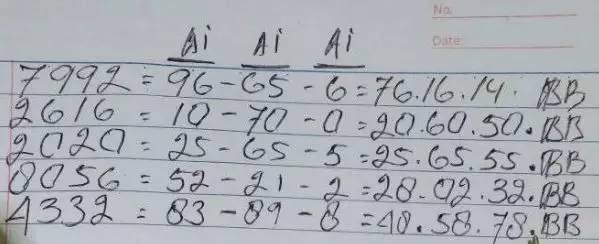 No.
Date:
Ai Ai Ai
7992 = 96-65-6=76.16.14. BB
2616 = 10-70-0=20.60.50. BB
2020 = 25-65-5=25.65.55. BB
8056 = 52-21-2=28.02.32. BB
4332 = 83-89-8=48.58.78. BB